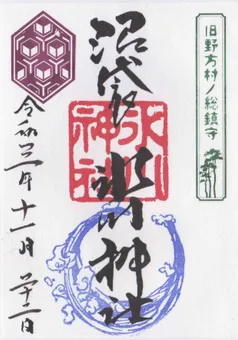 旧野方村ノ総鎮守
沼袋
氷川神社
氷川
神社
令和三年十一月二十二日